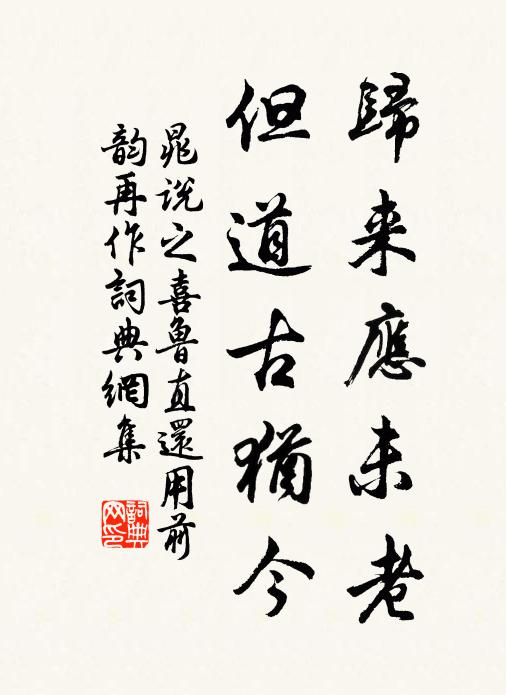 歸来應未老
但道古猶今
晁説之喜魯直還用前
韵再作詞典網集
詞典网印